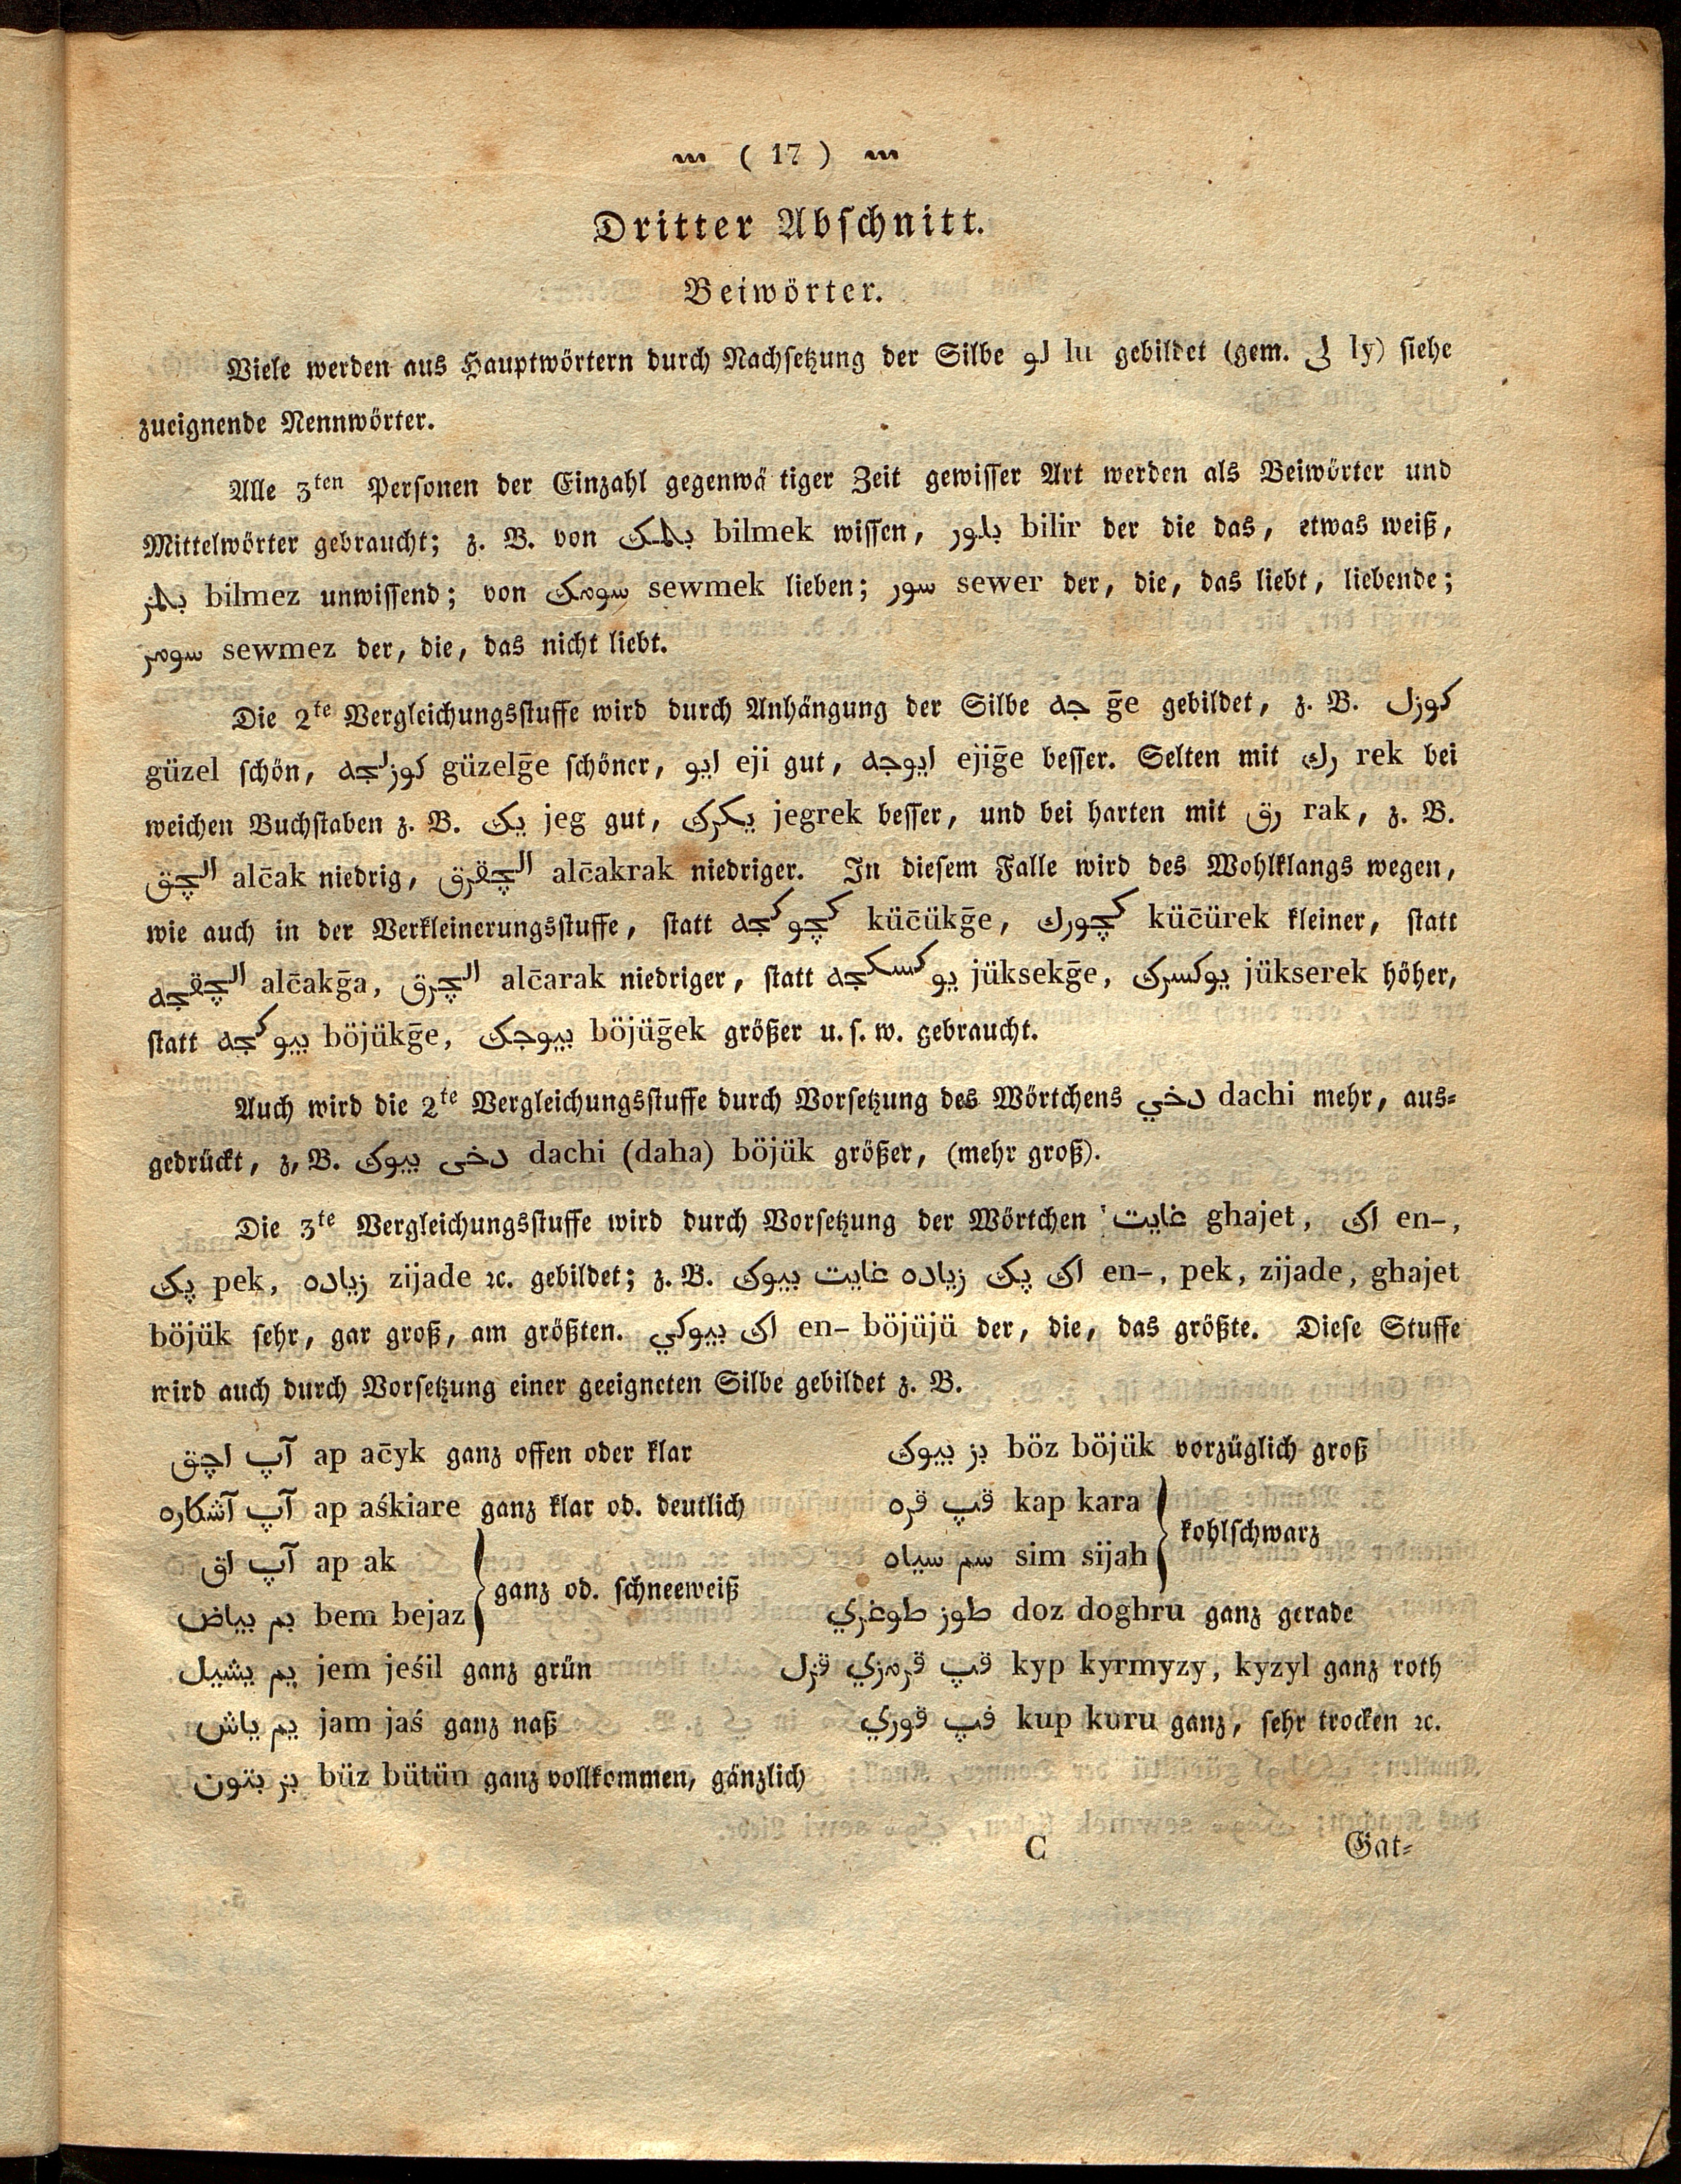 ( 17 )
Dritter Abschnitt.
Beiwörter.
Viele werden aus Hauptwörtern durch Nachsetzung der Silbe لو lu gebildet (gem. لى ly) siehe
zueignende Nennwörter.
Alle 3ten Personen der Einzahl gegenwä tiger Zeit gewisser Art werden als Beiwörter und
Mittelwörter gebraucht; z. B. von بلمك bilmek wissen, بلور bilir der die das, etwas weiß,
بلمز bilmez unwissend; von سومك sewmek lieben; سور sewer der, die, das liebt, liebende;
سومز sewmez der, die, das nicht liebt.
Die 2te Vergleichungsstuffe wird durch Anhängung der Silbe جه ḡe gebildet, z. B. كوزل
güzel schön, كوزلجه güzelḡe schöner, ايو eji gut, ايوجه ejiḡe besser. Selten mit رك rek bei
weichen Buchstaben z. B. يك jeg gut, يكرك jegrek besser, und bei harten mit رق rak, z. B.
الچق alc̄ak niedrig, الچقرق alc̄akrak niedriger. In diesem Falle wird des Wohlklangs wegen,
wie auch in der Verkleinerungsstuffe, statt كچوكجه küc̄ükḡe, كچورك küc̄ürek kleiner, statt
الچقجه alc̄akḡa, الچرق alc̄arak niedriger, statt يوكسكجه jüksekḡe, يوكسرك jükserek höher,
statt بيوكجه böjükḡe, بيوجك böjüḡek größer u. s. w. gebraucht.
Auch wird die 2te Vergleichungsstuffe durch Vorsetzung des Wörtchens دخي dachi mehr, aus-
gedrückt, z. B. دخى بيوك dachi (daha) böjük größer, (mehr groß).
Die 3te Vergleichungsstuffe wird durch Vorsetzung der Wörtchen غايت ghajet, اك en-,
پك pek, زياده zijade ꝛc. gebildet; z. B. اك پك زياده غايت بيوك en-, pek, zijade, ghajet
böjük sehr, gar groß, am größten. اك بيوكي en- böjüjü der, die, das größte. Diese Stuffe
wird auch durch Vorsetzung einer geeigneten Silbe gebildet z. B.
آپ اچق ap ac̄yk ganz offen oder klar
آپ آشكاره ap aśkiare ganz klar od. deutlich
آپ اق ap ak
بم بياض bem bejaz
ganz od. schneeweiß
يم يشيل jem jeśil ganz grün
يم ياش jam jaś ganz naß
بز بتون büz bütün ganz vollkommen, gänzlich
بز بيوك böz böjük vorzüglich groß
قپ قره kap kara
سم سياه sim sijah
kohlschwarz
طوز طوغري doz doghru ganz gerade
قپ قرمزي قزل kyp kyrmyzy, kyzyl ganz roth
قپ قوري kup kuru ganz, sehr trocken ꝛc.
C
Gat-